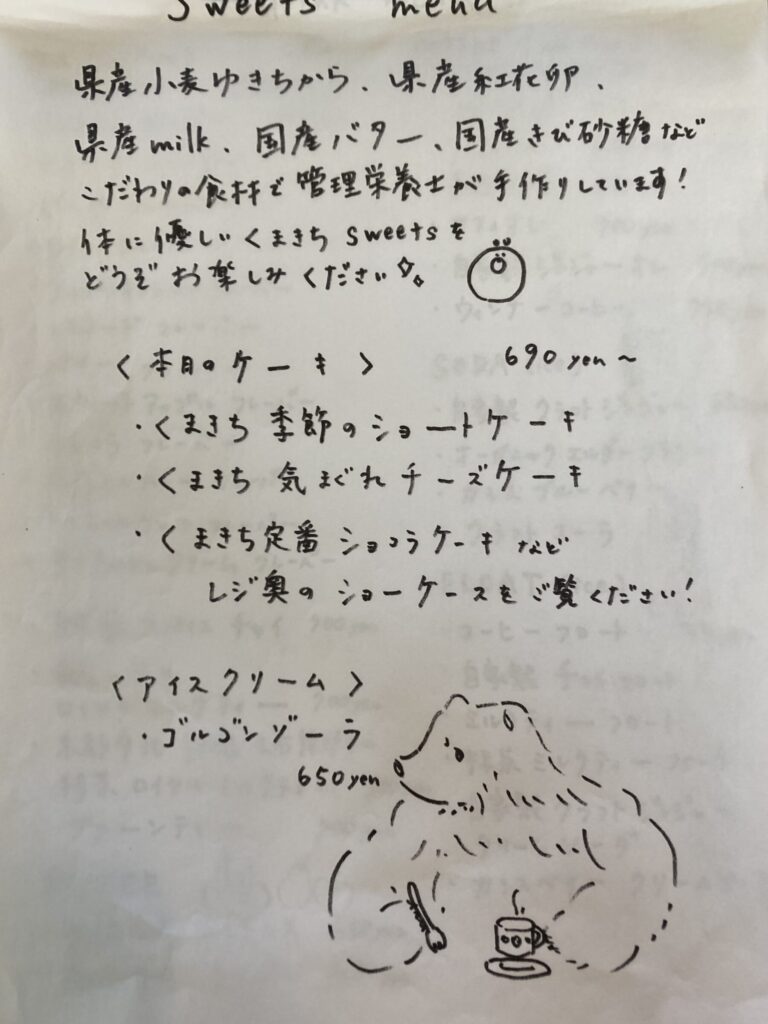 Sweets menu
県産小麦ゆきちから、県産紅花卵、
県産milk、国産バター、国産きび砂糖など
こだわりの食材で管理栄養士が手作りしています!
体に優しいくまきちsweetsを
どうぞお楽しみください
<本日のケーキ> 690yen~
・くまきち季節のショートケーキ
・くまきち気まぐれチーズケーキ
・くまきち定番ショコラケーキなど
レジ奥のショーケースをご覧ください!
<アイスクリーム>
・ゴルゴンゾーラ
650yen